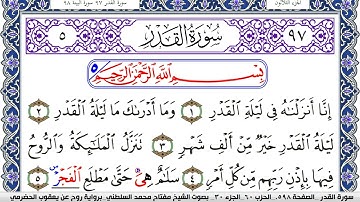 الجزء الثلاثون سورة القدر ٩٧ سورة البينة ٩٨
٩٧ سُورَةُ القَدْرِ ٥
بِسْمِ اللَّهِ الرَّحْمَٰنِ الرَّحِيمِ
إِنَّا أَنزَلْنَٰهُ فِي لَيْلَةِ القَدْرِ ١ وَمَا أَدْرَىٰكَ مَا لَيْلَةُ القَدْرِ ٢
لَيْلَةُ القَدْرِ خَيْرٌ مِّنْ أَلْفِ شَهْرٍ ٣ تَنَزَّلُ المَلَٰئِكَةُ وَالرُّوحُ
فِيهَا بِإِذْنِ رَبِّهِم مِّن كُلِّ أَمْرٍ ٤ سَلَٰمٌ هِيَ حَتَّىٰ مَطْلَعِ الفَجْرِ ٥
سورة القدر - الصفحة ٥٩٨ - الحزب ٦٠ - الجزء ٣٠ - بصوت الشيخ مفتاح محمد السلطني - برواية روح عن يعقوب الحضرمي